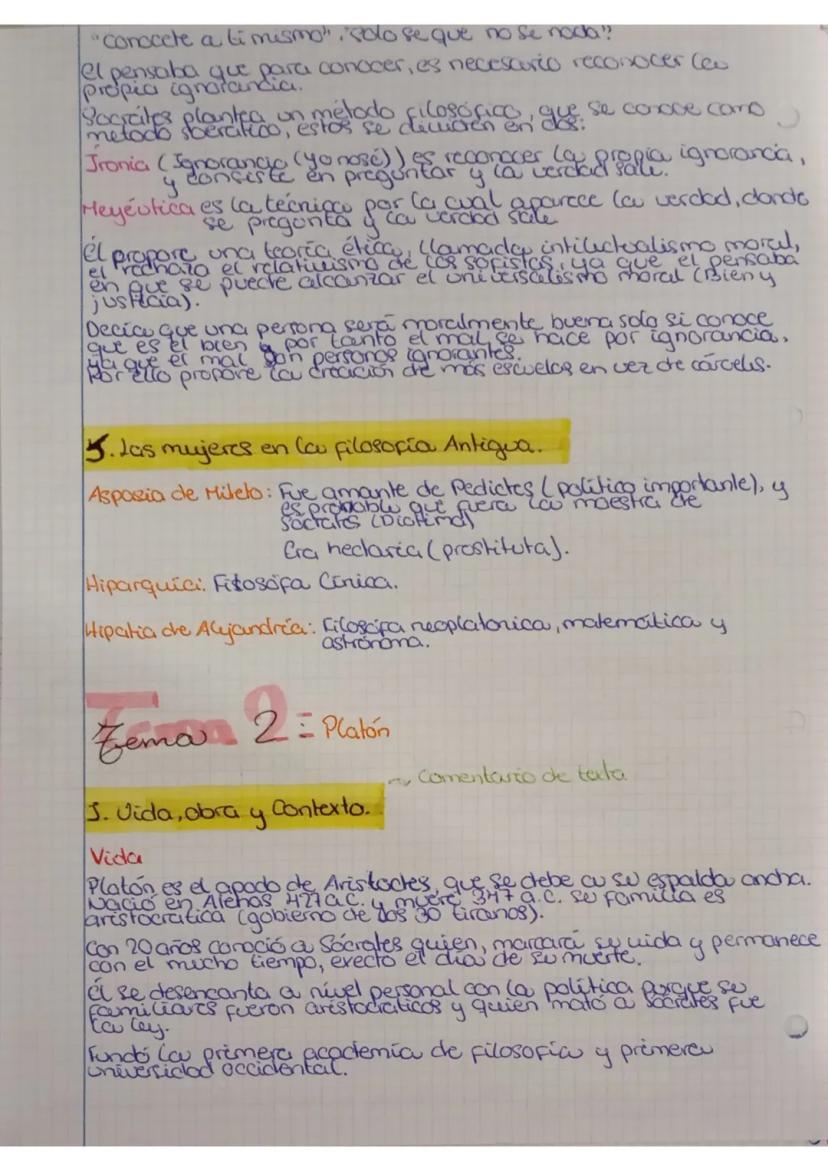 "conocete a ti mismo", "solo se que no se nada"?
el pensaba que para conocer, es necesario reconocer la
propia ignorancia.
Socrátes plantea un método filosófico, que se conoce como
metodo socrático, estos se dividen en dos:
Ironia (Ignorancia (yo nosé)) es reconocer la propia ignorancia,
y consiste en preguntar y la verdad sale.
Meyéutica es la técnica por la cual aparece la verdad, donde
se pregunta y la verdad sale
él propone una teoría ética, llamada intiluctualismo moral,
el rechazo el relativismo de los sofistas, ya que el pensaba
en que se puede alcanzar el universalismo moral (Bien y
justicia).
Decía que una persona será moralmente buena solo si conoce
que es el bien y por tanto el mal se hace por ignorancia,
ya que el mal son personas ignorantes.
Por ello propone la creación de más escuelas en vez de cárceles.
5. Las mujeres en la filosofía Antigua.
Aspasia de Mileto: Fue amante de Pedicles (político importante), y
es probable que fuera la maestra de
Sócrates (Diotima)
Era hectaria (prostituta).
Hiparquia: Filosófa Cínica.
Hipatia de Alejandría: Filosófa neoplatonica, matemática y
astrónoma.
Tema 2: Platón
~ Comentario de texto
1. Vida, obra y Contexto.
Vida
Platón es el apodo de Aristocles, que se debe a su espalda ancha.
Nació en Atenas 427 a.C. y muere 347 a.C. su familia es
aristocrática (gobierno de los 30 tiranos).
Con 20 años conoció a Sócrates quien, marcará su vida y permanece
con el mucho tiempo, execto el día de su muerte.
él se desencanta a nivel personal con la política porque su
familiares fueron aristocráticos y quien mató a Socrátes fue
la ley.
Fundó la primera academia de filosofía y primera
universidad occidental.